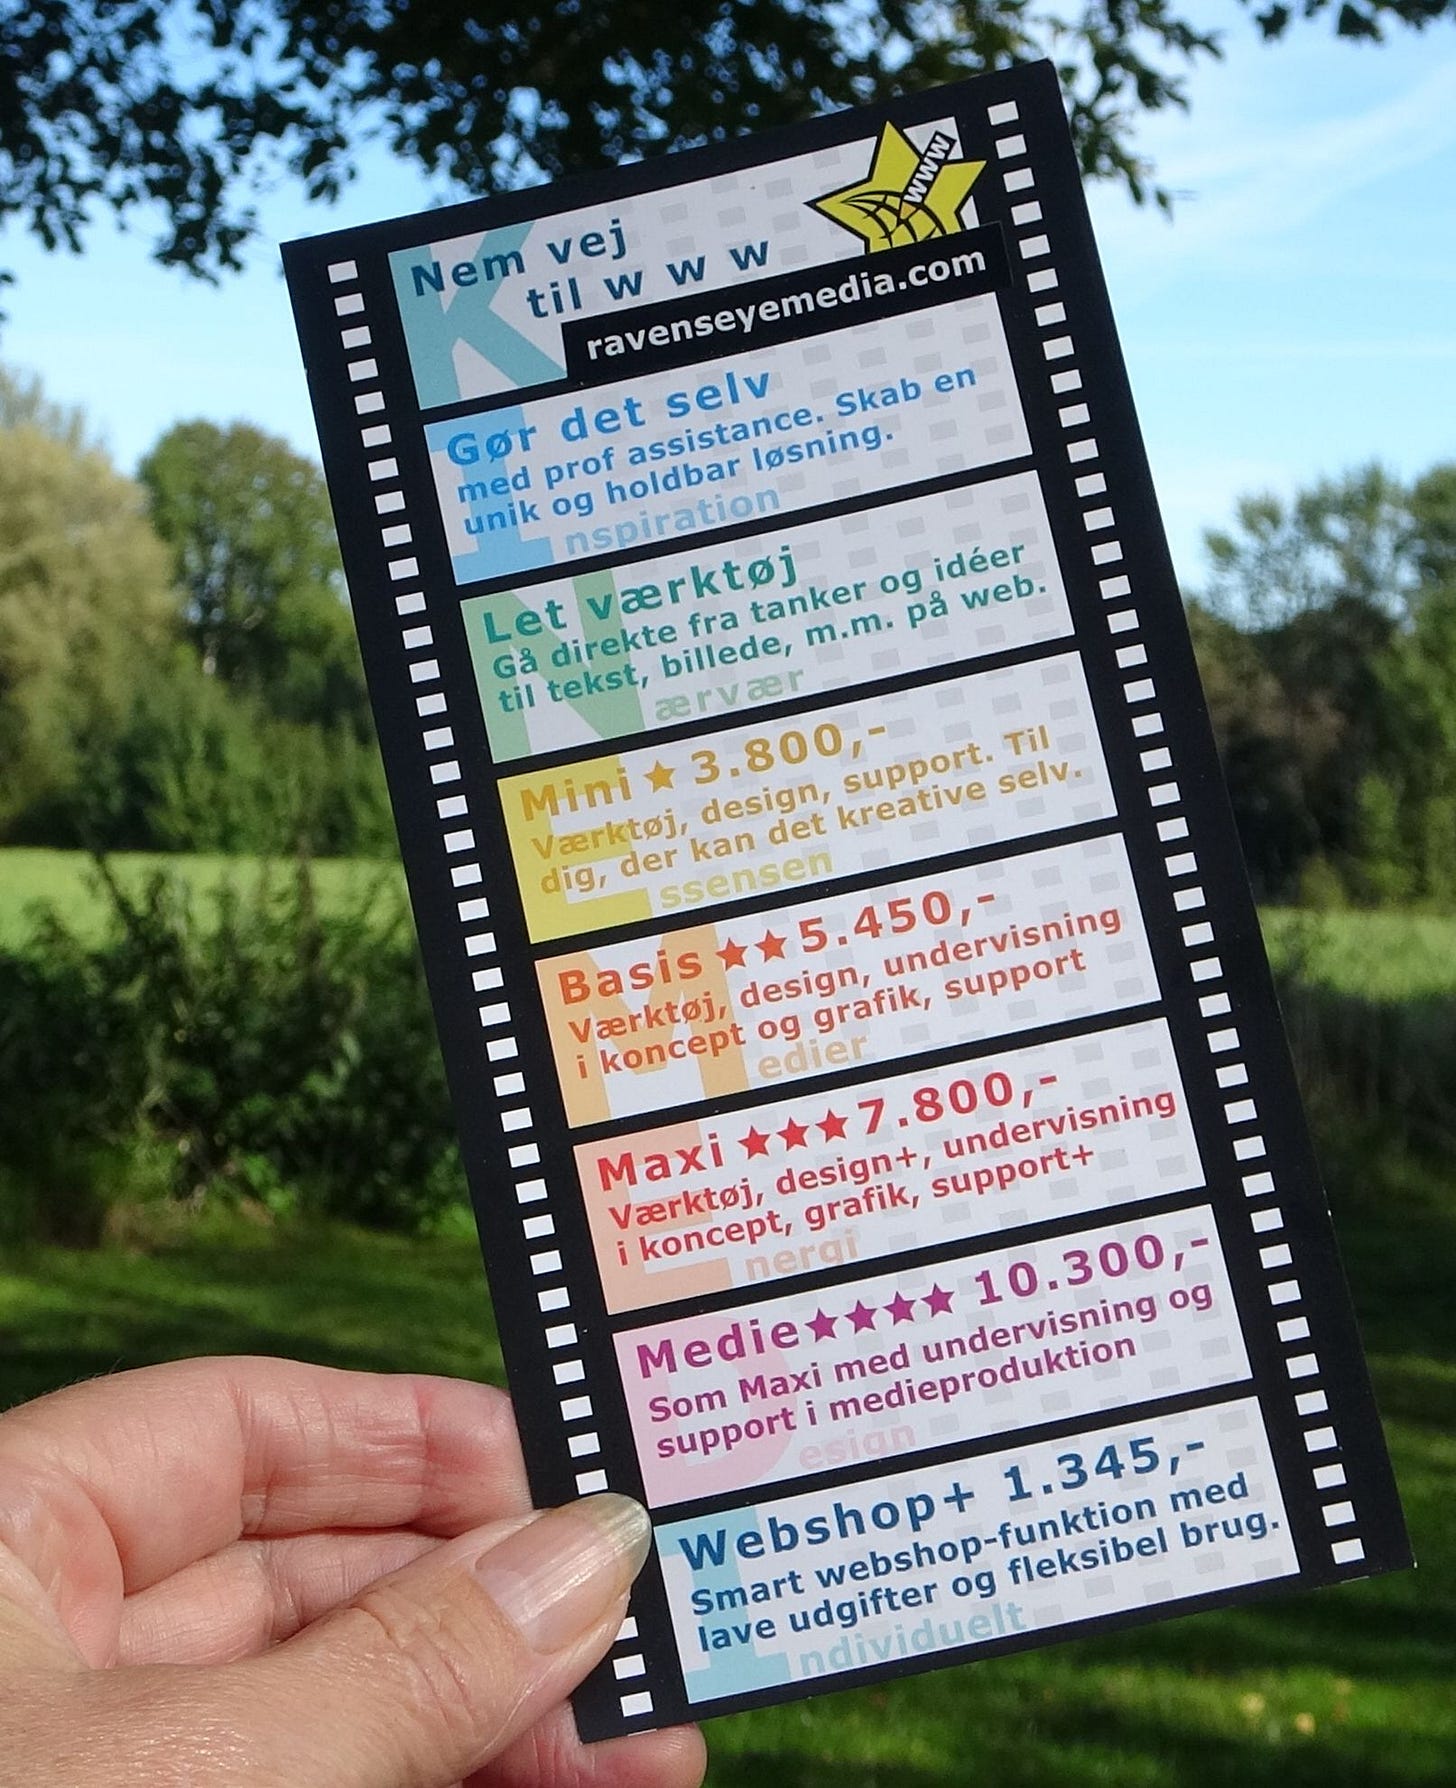 Nem vej
til w w w
www
ravenseyemedia.com
K
Gør det selv
med prof assistance. Skab en
unik og holdbar løsning.
Inspiration
Let værktøj
Gå direkte fra tanker og idéer
til tekst, billede, m.m. på web.
Nærvær
Mini ★ 3.800,-
Værktøj, design, support. Til
dig, der kan det kreative selv.
Essensen
Basis ★★ 5.450,-
Værktøj, design, undervisning
i koncept og grafik, support
Medier
Maxi ★★★ 7.800,-
Værktøj, design+, undervisning
i koncept, grafik, support+
Energi
Medie ★★★★ 10.300,-
Som Maxi med undervisning og
support i medieproduktion
Design
Webshop+ 1.345,-
Smart webshop-funktion med
lave udgifter og fleksibel brug.
Individuelt